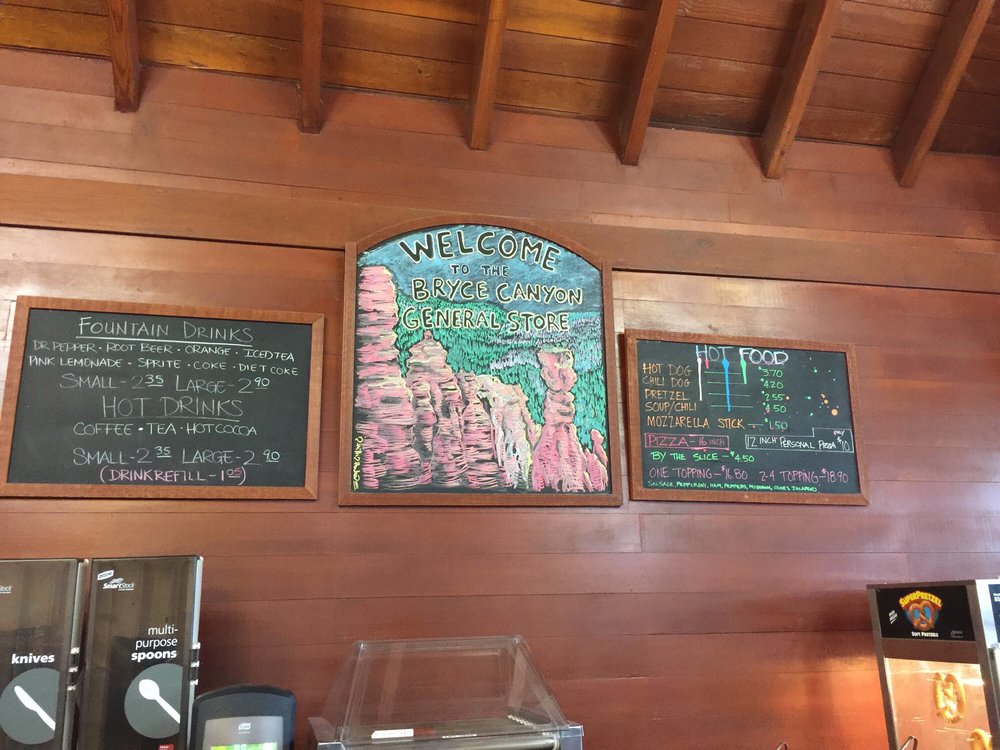 FOUNTAIN DRINKS
DR PEPPER · ROOT BEER · ORANGE · ICED TEA
PINK LEMONADE · SPRITE · COKE · DIET COKE
SMALL - 2 35 LARGE - 2 90
HOT DRINKS
COFFEE · TEA · HOT COCOA
SMALL - 2 35 LARGE - 2 90
(DRINK REFILL - 1 05)
WELCOME
TO THE
BRYCE CANYON
GENERAL STORE
HOT FOOD
HOT DOG $3.70
CHILI DOG $4.20
PRETZEL $2.55
SOUP/CHILI $4.50
MOZZARELLA STICK - $1.50
PIZZA - 16 INCH
12 INCH PERSONAL PIZZA ONLY $10
BY THE SLICE - $4.50
ONE TOPPING - $16.80 2-4 TOPPING - $18.90
SAUSAGE, PEPPERONI, HAM, PEPPERS, MUSHROOM, OLIVES, JALAPENO
SmartStock
knives
SmartStock
multi-
purpose
spoons
SUPERPRETZEL
SOFT PRETZELS